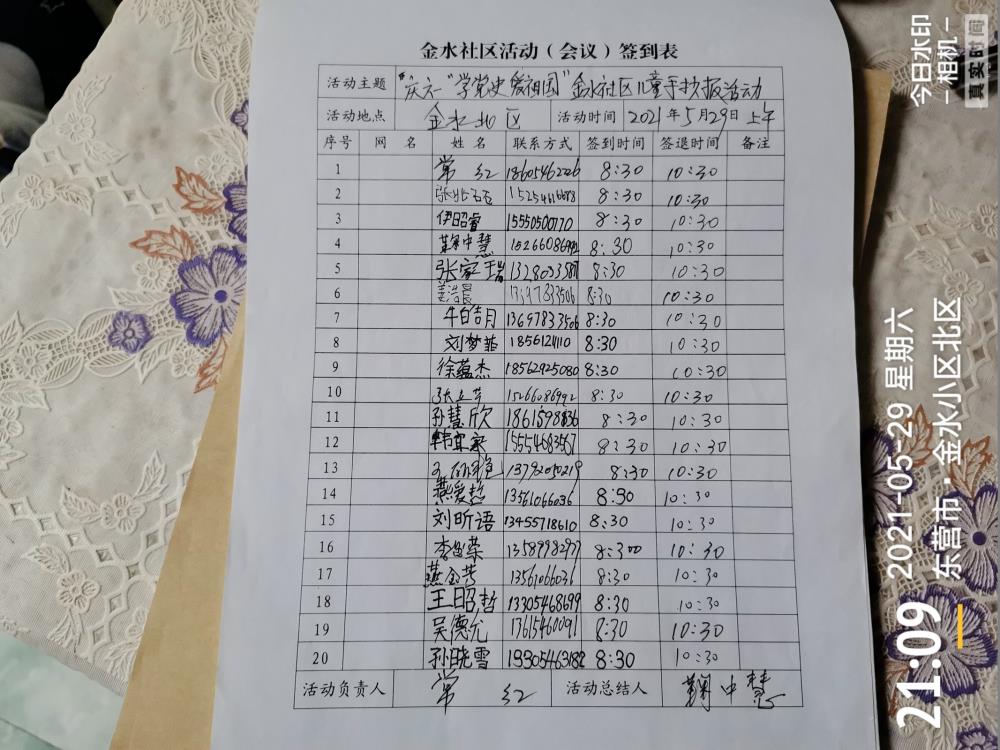 金水社区活动（会议）签到表
活动主题 "庆六一"学党史 爱祖国"金水社区儿童手抄报活动
活动地点 金水北区 活动时间 2021年5月29日 上午
序号 网 名 姓 名 联系方式 签到时间 签退时间 备注
1 常 红 18605462226 8:30 10:30
2 8:30 10:30
3 伊昭睿 15550500770 8:30 10:30
4 鞠中慧 15266086992 8:30 10:30
5 张家瑞 8:30 10:30
6 8:30 10:30
7 牛皓月 13697833506 8:30 10:30
8 刘梦菲 8:30 10:30
9 徐蕴杰 18562925080 8:30 10:30
10 15266086992 8:30 10:30
11 孙慧欣 8:30 10:30
12 韩宜家 15554683567 8:30 10:30
13 8:30 10:30
14 燕爱哲 13561066036 8:30 10:30
15 刘昕语 13455718610 8:30 10:30
16 8:30 10:30
17 13561066036 8:30 10:30
18 王昭哲 13305468699 8:30 10:30
19 吴德允 17615460091 8:30 10:30
20 孙晓雪 8:30 10:30
活动负责人 常 红 活动总结人 鞠中慧
今日水印
-相机-
真实时间
21:09
2021-05-29 星期六
东营市·金水小区北区